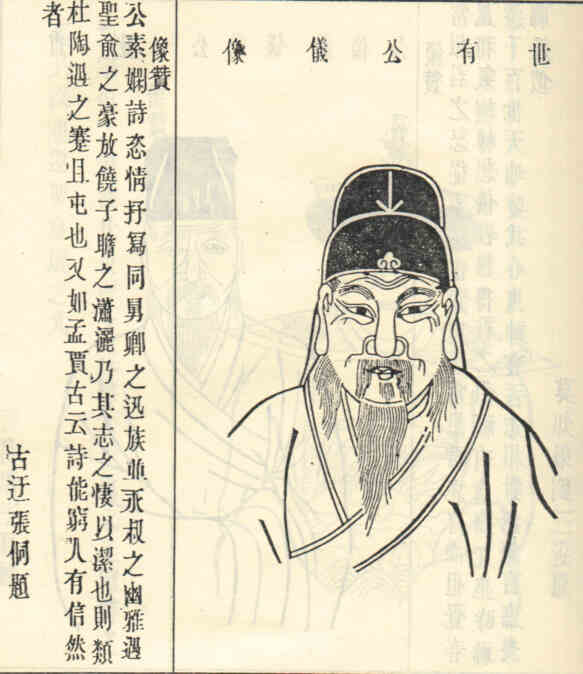 世有公儀像
像贊
公素嫻詩恣情抒寫同舅卿之迅族並永叔之幽雅遇
聖俞之豪放饒子瞻之瀟灑乃其志之悽以潔也則類
杜陶遇之蹇且屯也又如孟賈古云詩能窮人有信然
者
古迂張侗題